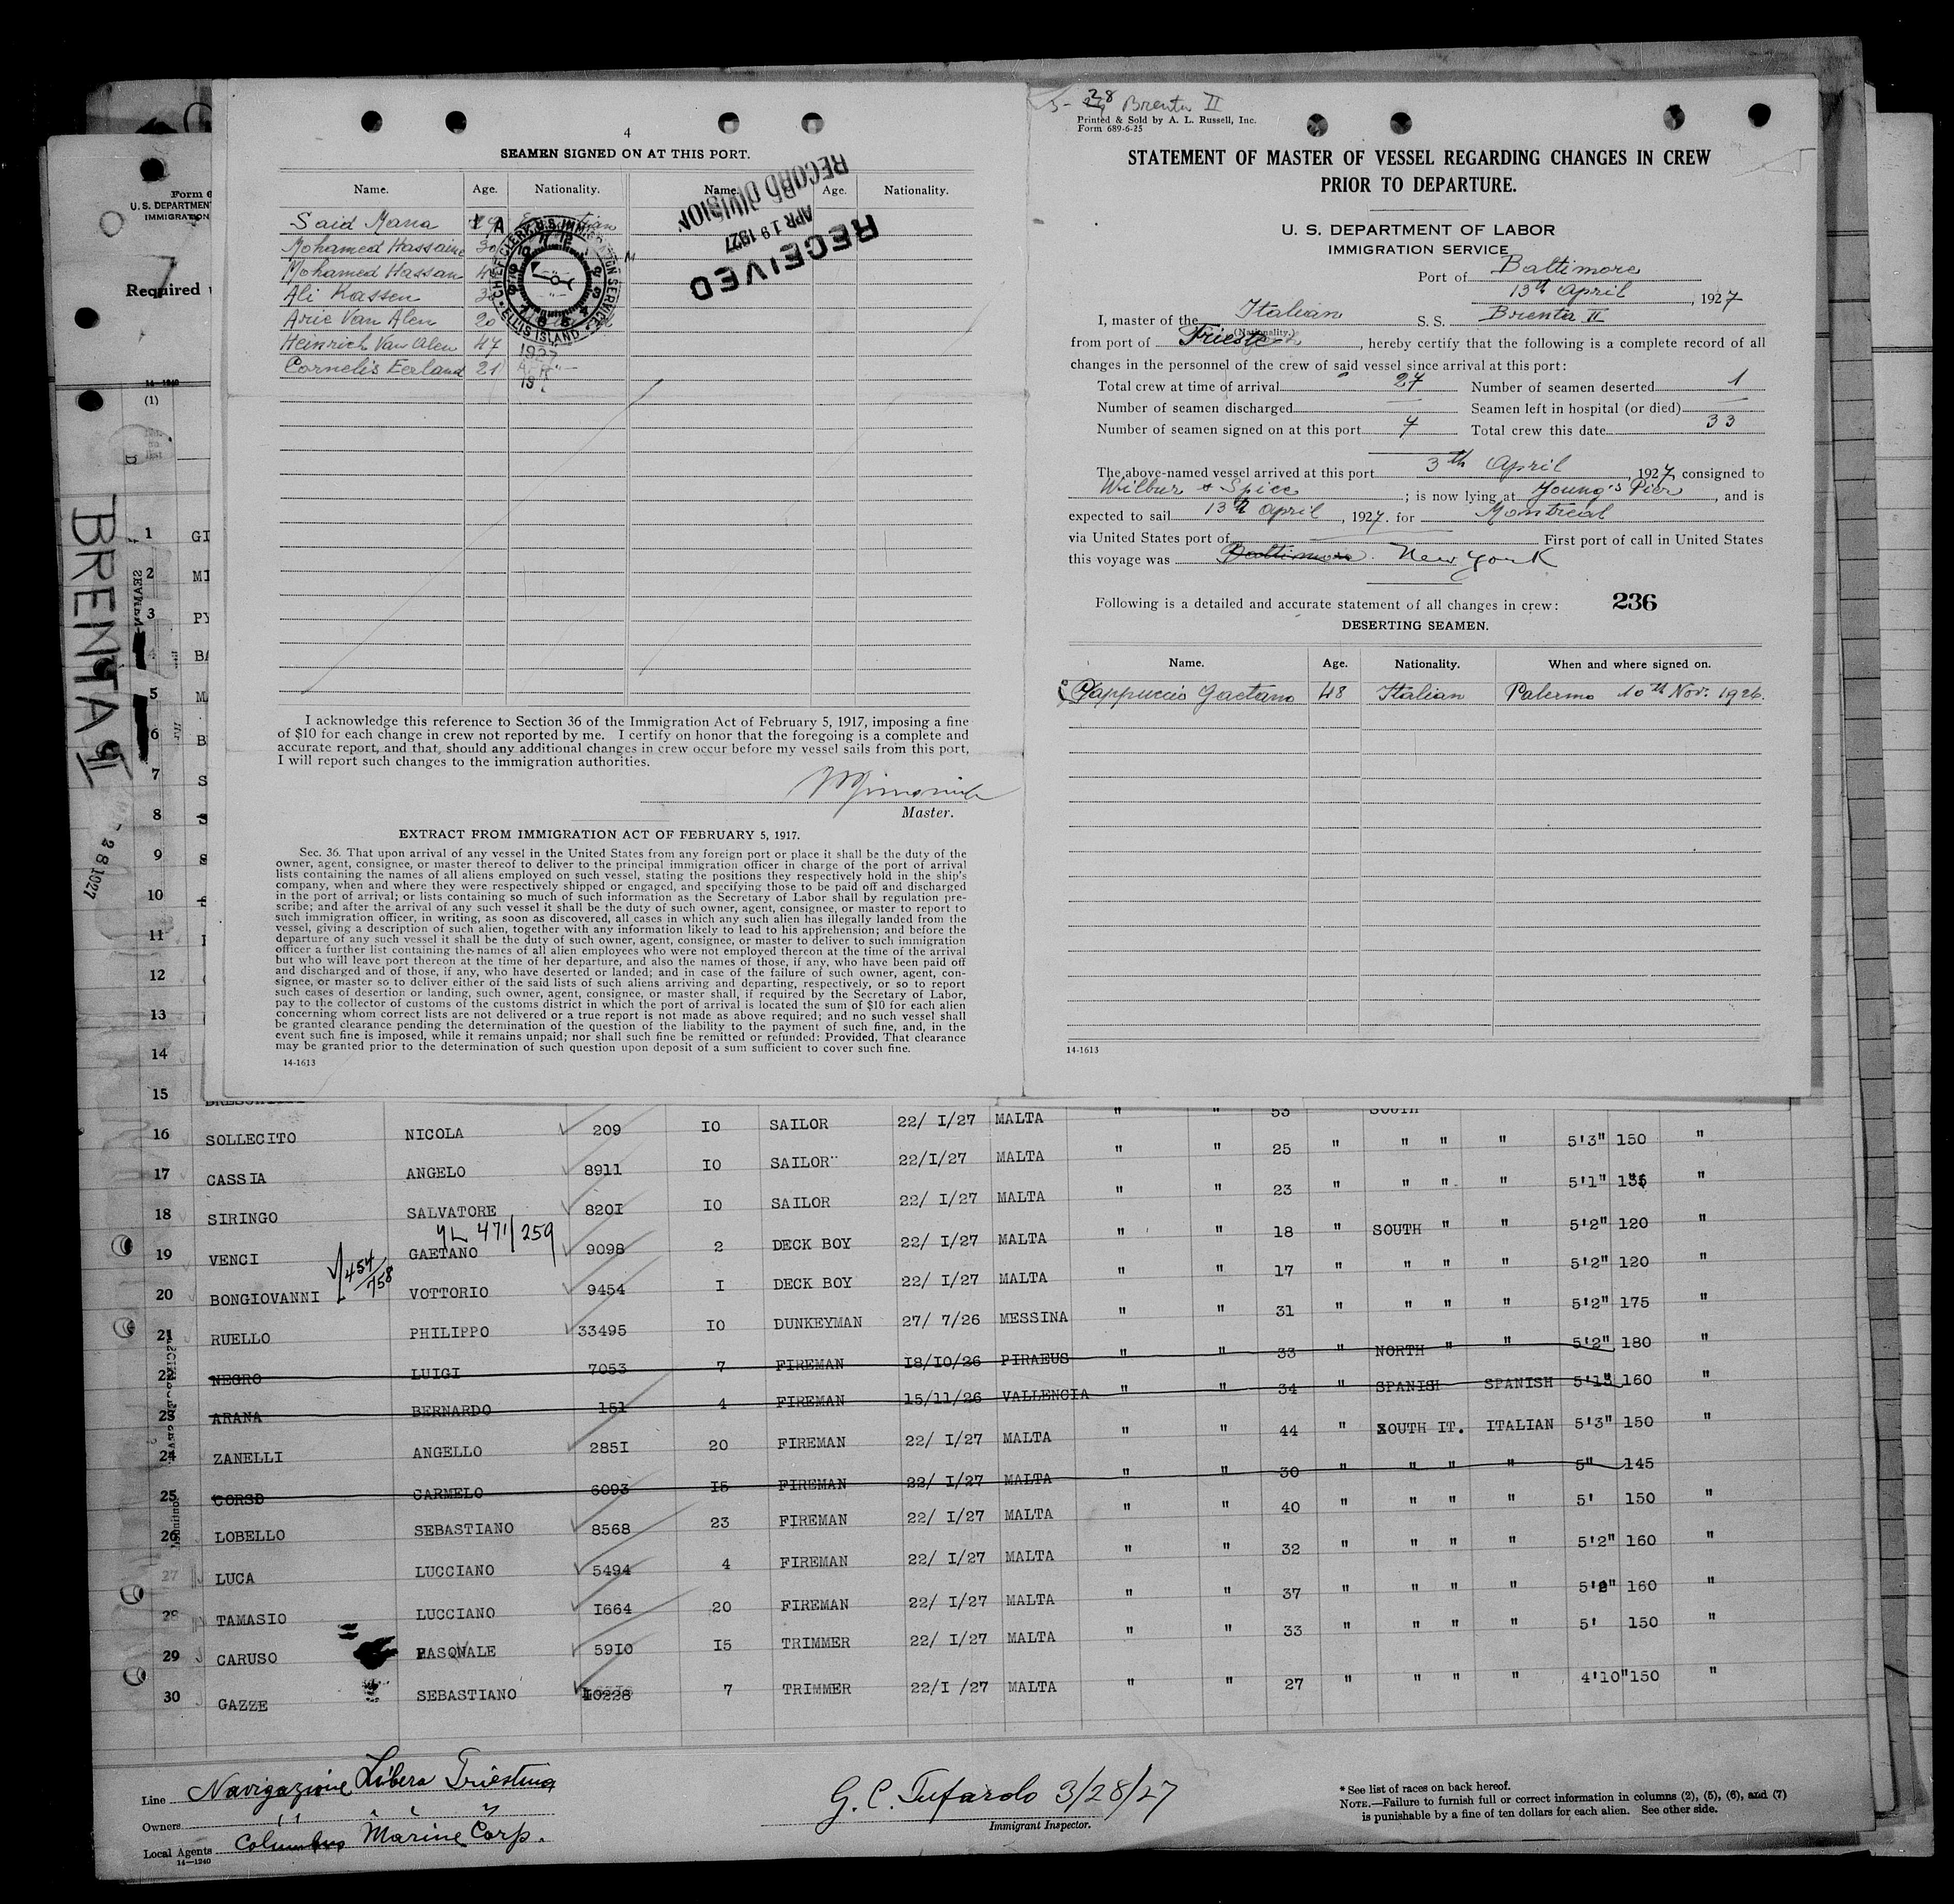 4
SEAMEN SIGNED ON AT THIS PORT.
Name. Age. Nationality. Name. Age. Nationality.
Said Mana
Mohamed Hassaine 30
Mohamed Hassan
Ali Kassen
Arie Van Alen 20
Heinrich Van Alen 47
Cornelis Eerland 21
RECORD DIVISION
APR 19 1927
RECEIVED
CHIEF CLERK U.S. IMMIGRATION SERVICE
ELLIS ISLAND
1927
I acknowledge this reference to Section 36 of the Immigration Act of February 5, 1917, imposing a fine
of $10 for each change in crew not reported by me. I certify on honor that the foregoing is a complete and
accurate report, and that, should any additional changes in crew occur before my vessel sails from this port,
I will report such changes to the immigration authorities.
Master.
EXTRACT FROM IMMIGRATION ACT OF FEBRUARY 5, 1917.
Sec. 36. That upon arrival of any vessel in the United States from any foreign port or place it shall be the duty of the
owner, agent, consignee, or master thereof to deliver to the principal immigration officer in charge of the port of arrival
lists containing the names of all aliens employed on such vessel, stating the positions they respectively hold in the ship's
company, when and where they were respectively shipped or engaged, and specifying those to be paid off and discharged
in the port of arrival; or lists containing so much of such information as the Secretary of Labor shall by regulation pre-
scribe; and after the arrival of any such vessel it shall be the duty of such owner, agent, consignee, or master to report to
such immigration officer, in writing, as soon as discovered, all cases in which any such alien has illegally landed from the
vessel, giving a description of such alien, together with any information likely to lead to his apprehension; and before the
departure of any such vessel it shall be the duty of such owner, agent, consignee, or master to deliver to such immigration
officer a further list containing the names of all alien employees who were not employed thereon at the time of the arrival
but who will leave port thereon at the time of her departure, and also the names of those, if any, who have been paid off
and discharged and of those, if any, who have deserted or landed; and in case of the failure of such owner, agent, con-
signee, or master so to deliver either of the said lists of such aliens arriving and departing, respectively, or so to report
such cases of desertion or landing, such owner, agent, consignee, or master shall, if required by the Secretary of Labor,
pay to the collector of customs of the customs district in which the port of arrival is located the sum of $10 for each alien
concerning whom correct lists are not delivered or a true report is not made as above required; and no such vessel shall
be granted clearance pending the determination of the question of the liability to the payment of such fine, and, in the
event such fine is imposed, while it remains unpaid; nor shall such fine be remitted or refunded: Provided, That clearance
may be granted prior to the determination of such question upon deposit of a sum sufficient to cover such fine.
14-1613
28 Brenta II
Printed & Sold by A. L. Russell, Inc.
Form 689-6-25
STATEMENT OF MASTER OF VESSEL REGARDING CHANGES IN CREW
PRIOR TO DEPARTURE.
U. S. DEPARTMENT OF LABOR
IMMIGRATION SERVICE
Port of Baltimore
13th April, 1927
I, master of the Italian S. S. Brenta II
(Nationality.)
from port of Trieste, hereby certify that the following is a complete record of all
changes in the personnel of the crew of said vessel since arrival at this port:
Total crew at time of arrival 27 Number of seamen deserted 1
Number of seamen discharged — Seamen left in hospital (or died) —
Number of seamen signed on at this port 7 Total crew this date 33
The above-named vessel arrived at this port 3th April, 1927, consigned to
Wilbur & Spice; is now lying at Young's Pier, and is
expected to sail 13th April, 1927. for Montreal
via United States port of First port of call in United States
this voyage was Baltimore. New York
Following is a detailed and accurate statement of all changes in crew: 236
DESERTING SEAMEN.
Name. Age. Nationality. When and where signed on.
Cappuccio Gaetano 48 Italian Palermo 10th Nov. 1926.
14-1613
Form 6
U. S. DEPARTMENT
IMMIGRATION
Required
14-1240
(1)
BRENTA II
1 GI
2 MI
3 PY
4 BA
5 MA
6 B
7 S
8
9
10
11
12
13
14
15
16 SOLLECITO NICOLA 209 IO SAILOR 22/ I/27 MALTA " " 53 SOUTH
17 CASSIA ANGELO 8911 IO SAILOR 22/I/27 MALTA " " 25 " " " " 5'3" 150 "
18 SIRINGO SALVATORE 820I IO SAILOR 22/ I/27 MALTA " " 23 " " " " 5'1" 135 "
471/259
19 VENCI GAETANO 9098 2 DECK BOY 22/ I/27 MALTA " " 18 " SOUTH " " 5'2" 120 "
454/758
20 BONGIOVANNI VOTTORIO 9454 I DECK BOY 22/ I/27 MALTA " " 17 " " " " 5'2" 120 "
21 RUELLO PHILIPPO 33495 IO DUNKEYMAN 27/ 7/26 MESSINA " " 31 " " " " 5'2" 175 "
22 NEGRO LUIGI 7053 7 FIREMAN I8/IO/26 PIRAEUS " " 33 " NORTH " " 5'2" 180 "
23 ARANA BERNARDO 151 4 FIREMAN 15/11/26 VALLENCIA " " 34 " SPANISH SPANISH 5'1" 160 "
24 ZANELLI ANGELLO 285I 20 FIREMAN 22/ I/27 MALTA " " 44 " SOUTH IT. ITALIAN 5'3" 150 "
25 CORSO CARMELO 6093 I5 FIREMAN 22/ I/27 MALTA " " 30 " " " " 5" 145
26 LOBELLO SEBASTIANO 8568 23 FIREMAN 22/ I/27 MALTA " " 40 " " " " 5' 150 "
27 LUCA LUCCIANO 5494 4 FIREMAN 22/ I/27 MALTA " " 32 " " " " 5'2" 160 "
28 TAMASIO LUCCIANO I664 20 FIREMAN 22/ I/27 MALTA " " 37 " " " " 5'2" 160 "
29 CARUSO PASQUALE 59IO I5 TRIMMER 22/ I/27 MALTA " " 33 " " " " 5' 150 "
30 GAZZE SEBASTIANO 10228 7 TRIMMER 22/I /27 MALTA " " 27 " " " " 4'10" 150 "
Line Navigazione Libera Triestina
Owners " " "
Local Agents Columbus Marine Corp.
14-1240
G. C. Tufarolo 3/28/27
Immigrant Inspector.
* See list of races on back hereof.
NOTE.—Failure to furnish full or correct information in columns (2), (5), (6), and (7)
is punishable by a fine of ten dollars for each alien. See other side.